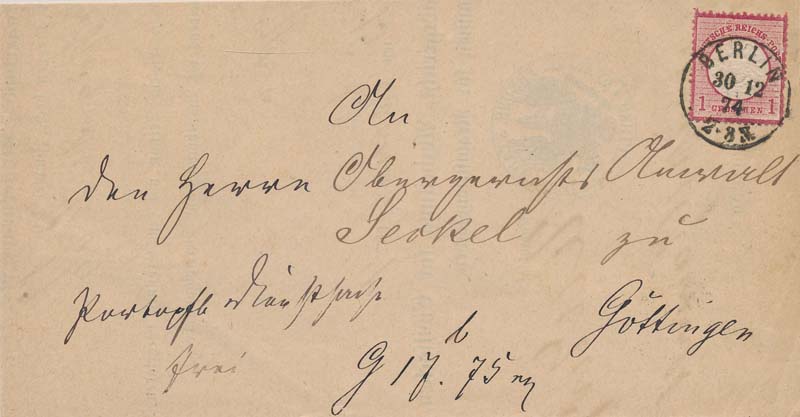 DEUTSCHE REICHS-POST
1 GROSCHEN 1
BERLIN
30 12
74
2-3 N.
An
den Herrn Obergerichts Anwalt
Seckel zu
Portopfl. Dienstsache Göttingen
frei
G 17. 75